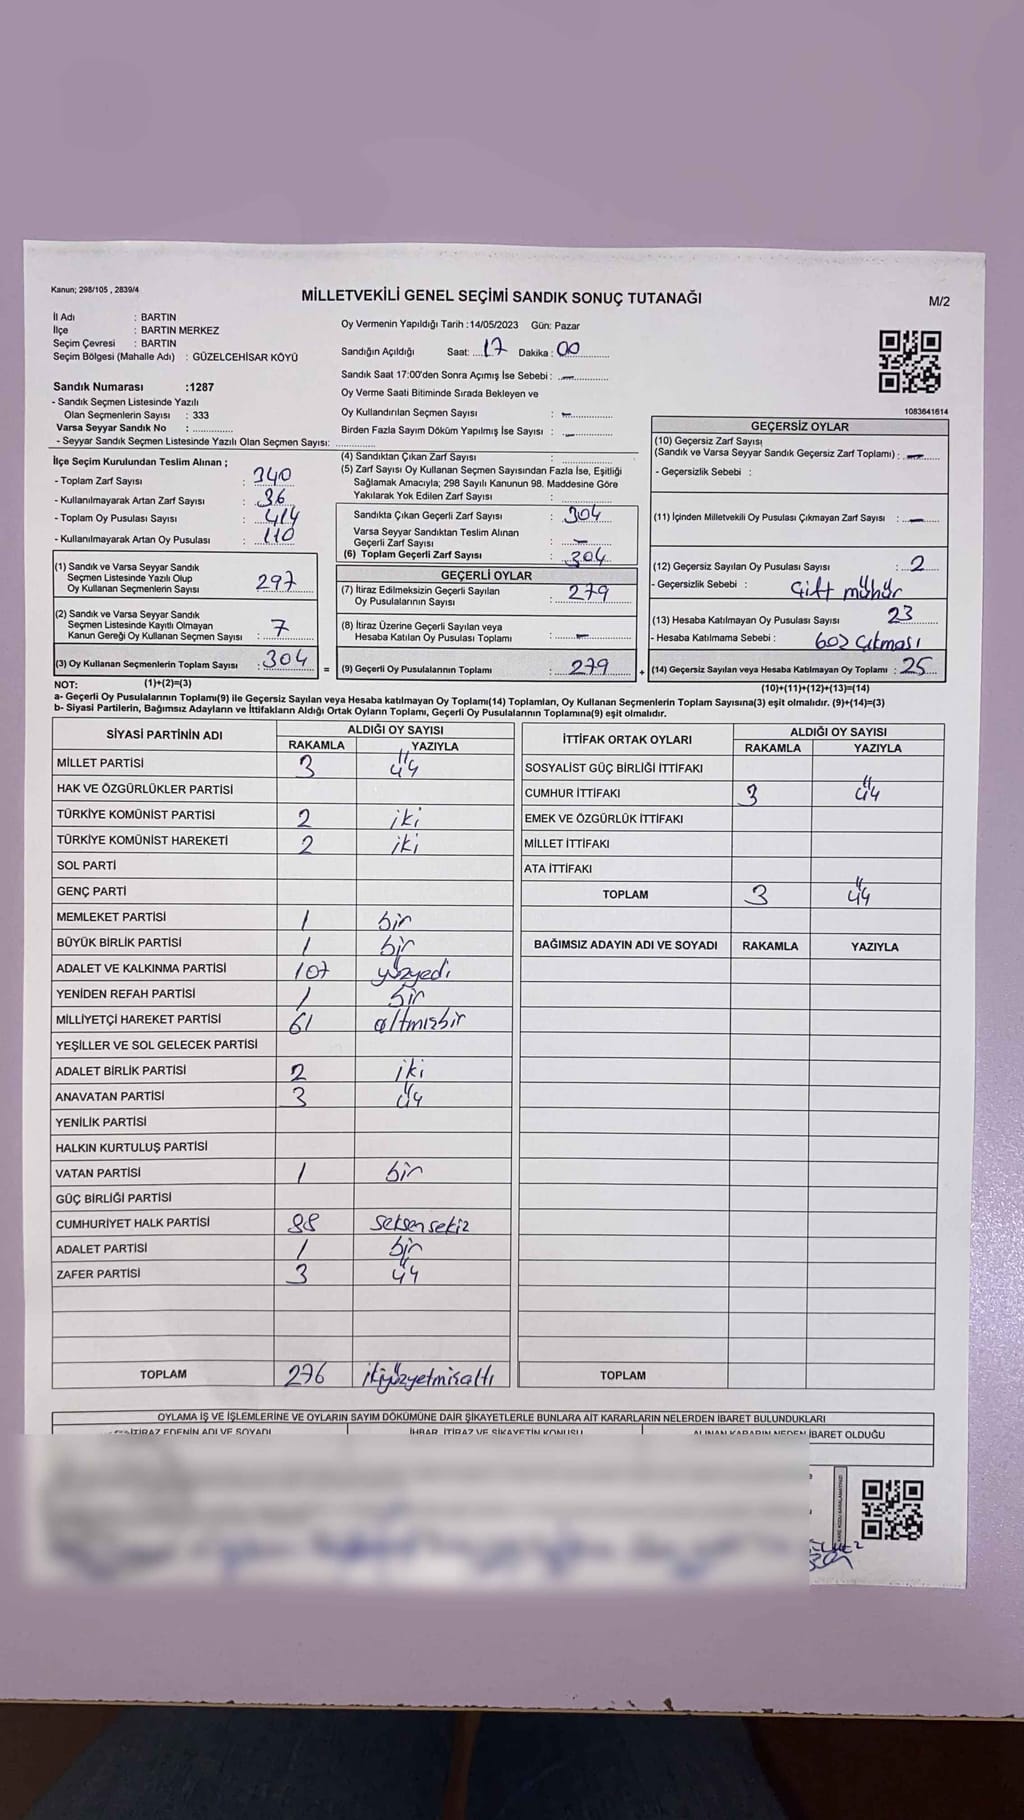 Kanun; 298/105 , 2839/4
MİLLETVEKİLİ GENEL SEÇİMİ SANDIK SONUÇ TUTANAĞI
M/2
İl Adı : BARTIN
İlçe : BARTIN MERKEZ
Seçim Çevresi : BARTIN
Seçim Bölgesi (Mahalle Adı) : GÜZELCEHİSAR KÖYÜ
Sandık Numarası :1287
- Sandık Seçmen Listesinde Yazılı
Olan Seçmenlerin Sayısı : 333
Varsa Seyyar Sandık No :
- Seyyar Sandık Seçmen Listesinde Yazılı Olan Seçmen Sayısı:
Oy Vermenin Yapıldığı Tarih :14/05/2023 Gün: Pazar
Sandığın Açıldığı Saat: 17 Dakika : 00
Sandık Saat 17:00'den Sonra Açımış İse Sebebi : —
Oy Verme Saati Bitiminde Sırada Bekleyen ve
Oy Kullandırılan Seçmen Sayısı : —
Birden Fazla Sayım Döküm Yapılmış İse Sayısı : —
1083641614
İlçe Seçim Kurulundan Teslim Alınan ;
- Toplam Zarf Sayısı : 340
- Kullanılmayarak Artan Zarf Sayısı : 36
- Toplam Oy Pusulası Sayısı : 414
- Kullanılmayarak Artan Oy Pusulası : 110
(1) Sandık ve Varsa Seyyar Sandık
Seçmen Listesinde Yazılı Olup
Oy Kullanan Seçmenlerin Sayısı : 297
(2) Sandık ve Varsa Seyyar Sandık
Seçmen Listesinde Kayıtlı Olmayan
Kanun Gereği Oy Kullanan Seçmen Sayısı : 7
(3) Oy Kullanan Seçmenlerin Toplam Sayısı : 304 =
(4) Sandıktan Çıkan Zarf Sayısı :
(5) Zarf Sayısı Oy Kullanan Seçmen Sayısından Fazla İse, Eşitliği
Sağlamak Amacıyla; 298 Sayılı Kanunun 98. Maddesine Göre
Yakılarak Yok Edilen Zarf Sayısı :
Sandıkta Çıkan Geçerli Zarf Sayısı : 304
Varsa Seyyar Sandıktan Teslim Alınan
Geçerli Zarf Sayısı : —
(6) Toplam Geçerli Zarf Sayısı : 304
GEÇERLİ OYLAR
(7) İtiraz Edilmeksizin Geçerli Sayılan
Oy Pusulalarının Sayısı : 279
(8) İtiraz Üzerine Geçerli Sayılan veya
Hesaba Katılan Oy Pusulası Toplamı : —
(9) Geçerli Oy Pusulalarının Toplamı : 279 +
GEÇERSİZ OYLAR
(10) Geçersiz Zarf Sayısı
(Sandık ve Varsa Seyyar Sandık Geçersiz Zarf Toplamı) : —
- Geçersizlik Sebebi :
(11) İçinden Milletvekili Oy Pusulası Çıkmayan Zarf Sayısı : —
(12) Geçersiz Sayılan Oy Pusulası Sayısı : 2
- Geçersizlik Sebebi : Çift mühür
(13) Hesaba Katılmayan Oy Pusulası Sayısı : 23
- Hesaba Katılmama Sebebi : boş çıkması
(14) Geçersiz Sayılan veya Hesaba Katılmayan Oy Toplamı : 25
NOT: (1)+(2)=(3)
(10)+(11)+(12)+(13)=(14)
a- Geçerli Oy Pusulalarının Toplamı(9) ile Geçersiz Sayılan veya Hesaba katılmayan Oy Toplamı(14) Toplamları, Oy Kullanan Seçmenlerin Toplam Sayısına(3) eşit olmalıdır. (9)+(14)=(3)
b- Siyasi Partilerin, Bağımsız Adayların ve İttifakların Aldığı Ortak Oyların Toplamı, Geçerli Oy Pusulalarının Toplamına(9) eşit olmalıdır.
SİYASİ PARTİNİN ADI ALDIĞI OY SAYISI
RAKAMLA YAZIYLA
MİLLET PARTİSİ 3 üç
HAK VE ÖZGÜRLÜKLER PARTİSİ
TÜRKİYE KOMÜNİST PARTİSİ 2 iki
TÜRKİYE KOMÜNİST HAREKETİ 2 iki
SOL PARTİ
GENÇ PARTİ
MEMLEKET PARTİSİ 1 bir
BÜYÜK BİRLİK PARTİSİ 1 bir
ADALET VE KALKINMA PARTİSİ 107 yüzyedi
YENİDEN REFAH PARTİSİ 1 bir
MİLLİYETÇİ HAREKET PARTİSİ 61 altmışbir
YEŞİLLER VE SOL GELECEK PARTİSİ
ADALET BİRLİK PARTİSİ 2 iki
ANAVATAN PARTİSİ 3 üç
YENİLİK PARTİSİ
HALKIN KURTULUŞ PARTİSİ
VATAN PARTİSİ 1 bir
GÜÇ BİRLİĞİ PARTİSİ
CUMHURİYET HALK PARTİSİ 88 seksensekiz
ADALET PARTİSİ 1 bir
ZAFER PARTİSİ 3 üç
TOPLAM 276 ikiyüzyetmişaltı
İTTİFAK ORTAK OYLARI ALDIĞI OY SAYISI
RAKAMLA YAZIYLA
SOSYALİST GÜÇ BİRLİĞİ İTTİFAKI
CUMHUR İTTİFAKI 3 üç
EMEK VE ÖZGÜRLÜK İTTİFAKI
MİLLET İTTİFAKI
ATA İTTİFAKI
TOPLAM 3 üç
BAĞIMSIZ ADAYIN ADI VE SOYADI RAKAMLA YAZIYLA
TOPLAM
OYLAMA İŞ VE İŞLEMLERİNE VE OYLARIN SAYIM DÖKÜMÜNE DAİR ŞİKAYETLERLE BUNLARA AİT KARARLARIN NELERDEN İBARET BULUNDUKLARI
İTİRAZ EDENİN ADI VE SOYADI İHBAR, İTİRAZ VE ŞİKAYETİN KONUSU ALINAN KARARIN NEDEN İBARET OLDUĞU